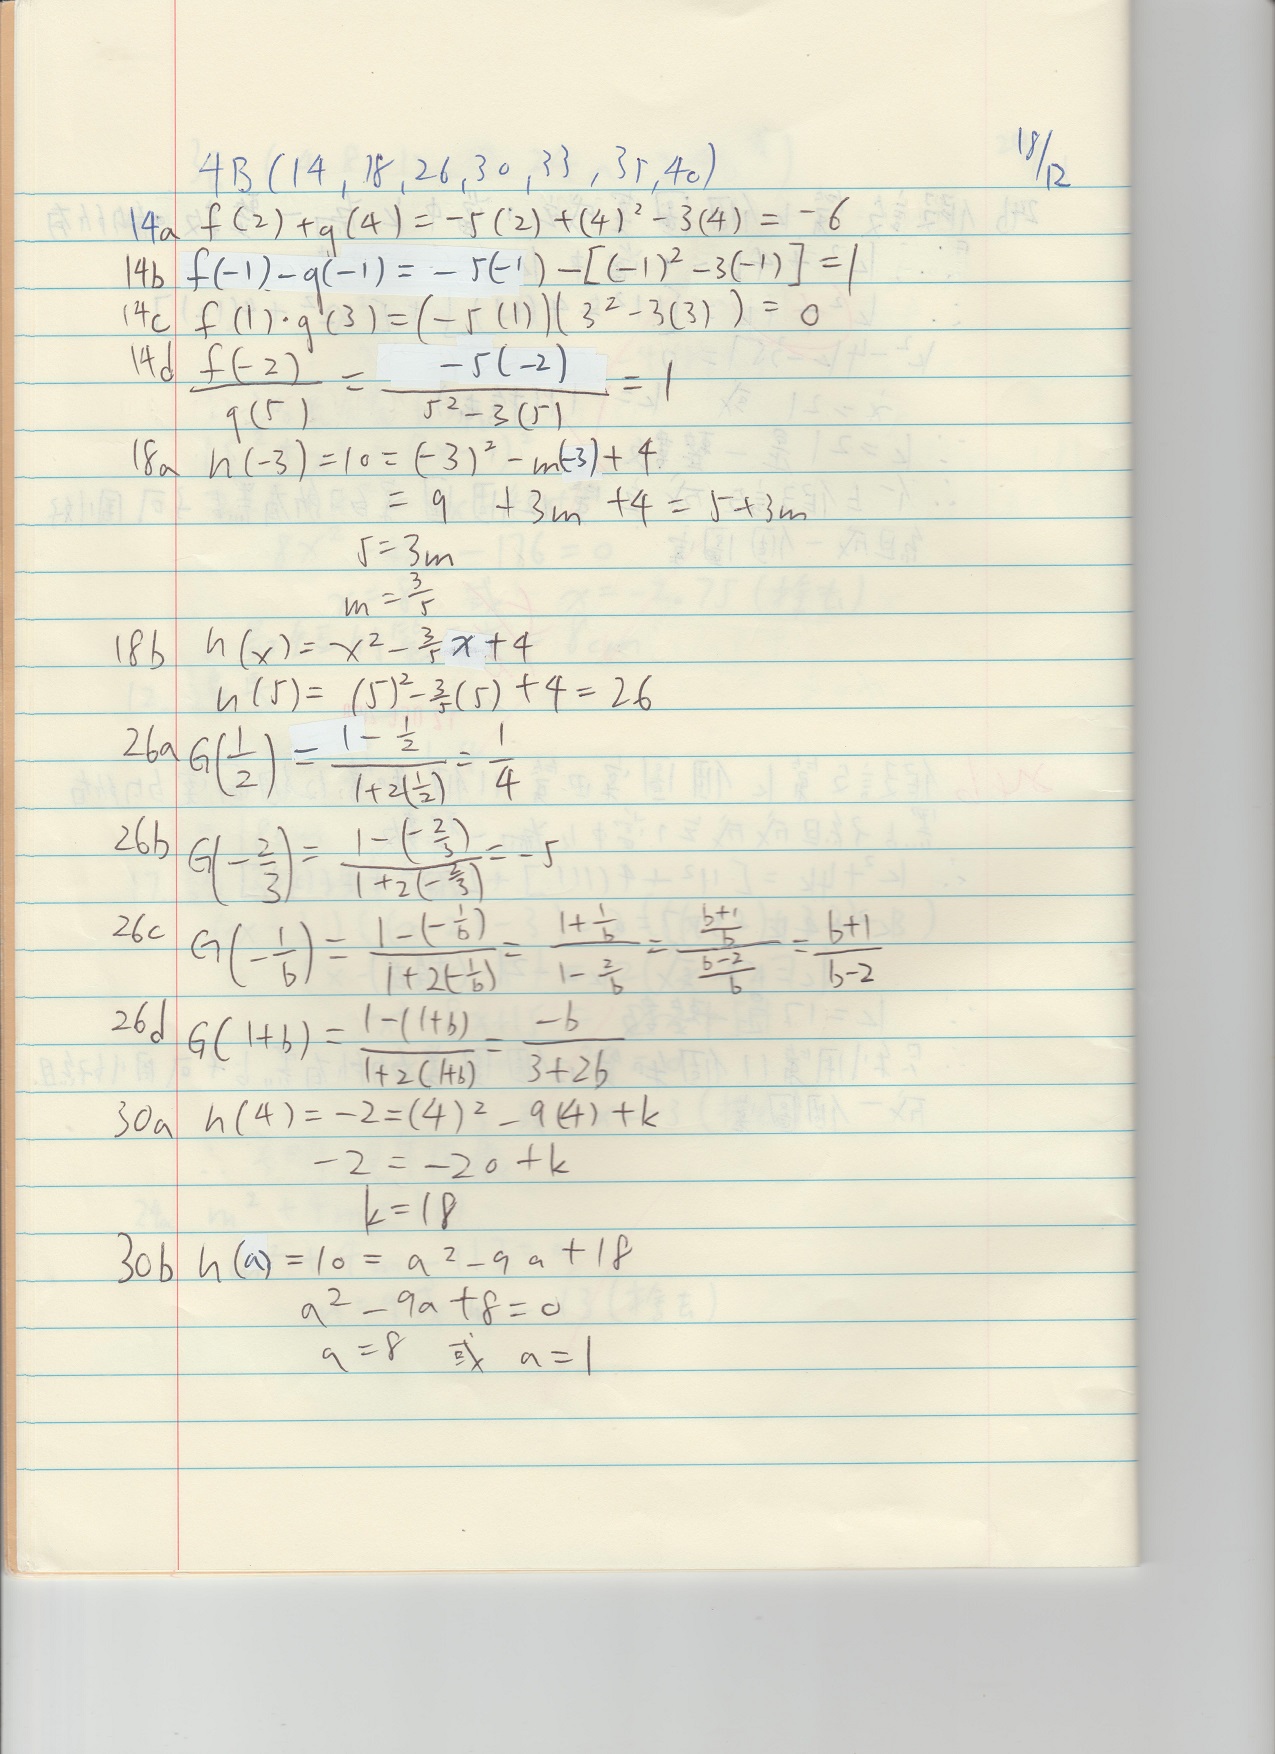 4B (14, 18, 26, 30, 33, 35, 40)
18/12
14a f(2)+g(4) = -5(2)+(4)² - 3(4) = -6
14b f(-1)-g(-1) = -5(-1)-[(-1)²-3(-1)] = 1
14c f(1)·g(3) = (-5(1))(3²-3(3)) = 0
14d f(-2)/g(5) = -5(-2)/5²-3(5) = 1
18a h(-3)=10=(-3)²-m(-3)+4
= 9 +3m +4 = 5+3m
5=3m
m=3/5
18b h(x)=x²-3/5x+4
h(5)= (5)²-3/5(5)+4=26
26a G(1/2) = 1-1/2/1+2(1/2) = 1/4
26b G(-2/3) = 1-(-2/3)/1+2(-2/3) = -5
26c G(-1/b) = 1-(-1/b)/1+2(-1/b) = 1+1/b/1-2/b = b+1/b/b-2/b = b+1/b-2
26d G(1+b) = 1-(1+b)/1+2(1+b) = -b/3+2b
30a h(4) = -2=(4)²-9(4)+k
-2 = -20+k
k=18
30b h(a)=10= a²-9a+18
a²-9a+8=0
a=8 或 a=1